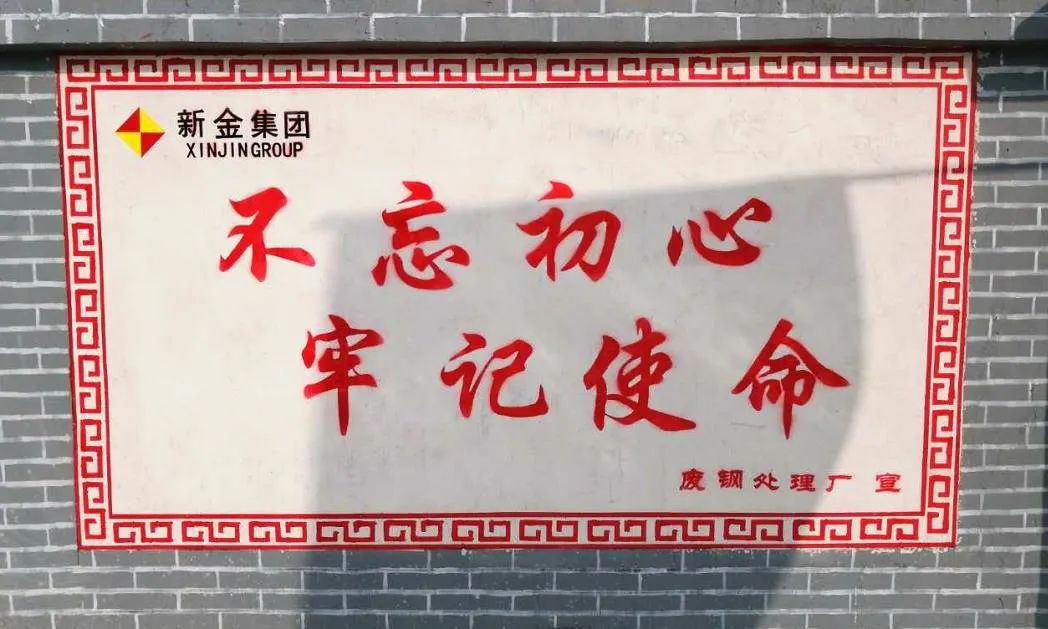 新金集团
XINJINGROUP
不忘初心
牢记使命
废钢处理厂 宣